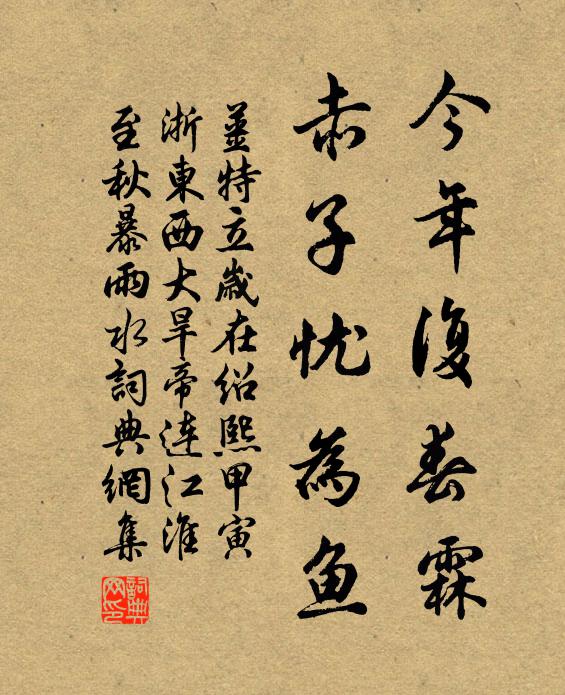 今年復春霖
赤子忧為鱼
薑特立歲在绍熙甲寅
浙東西大旱帝連江淮
至秋暴雨水詞典網集
詞典
网印